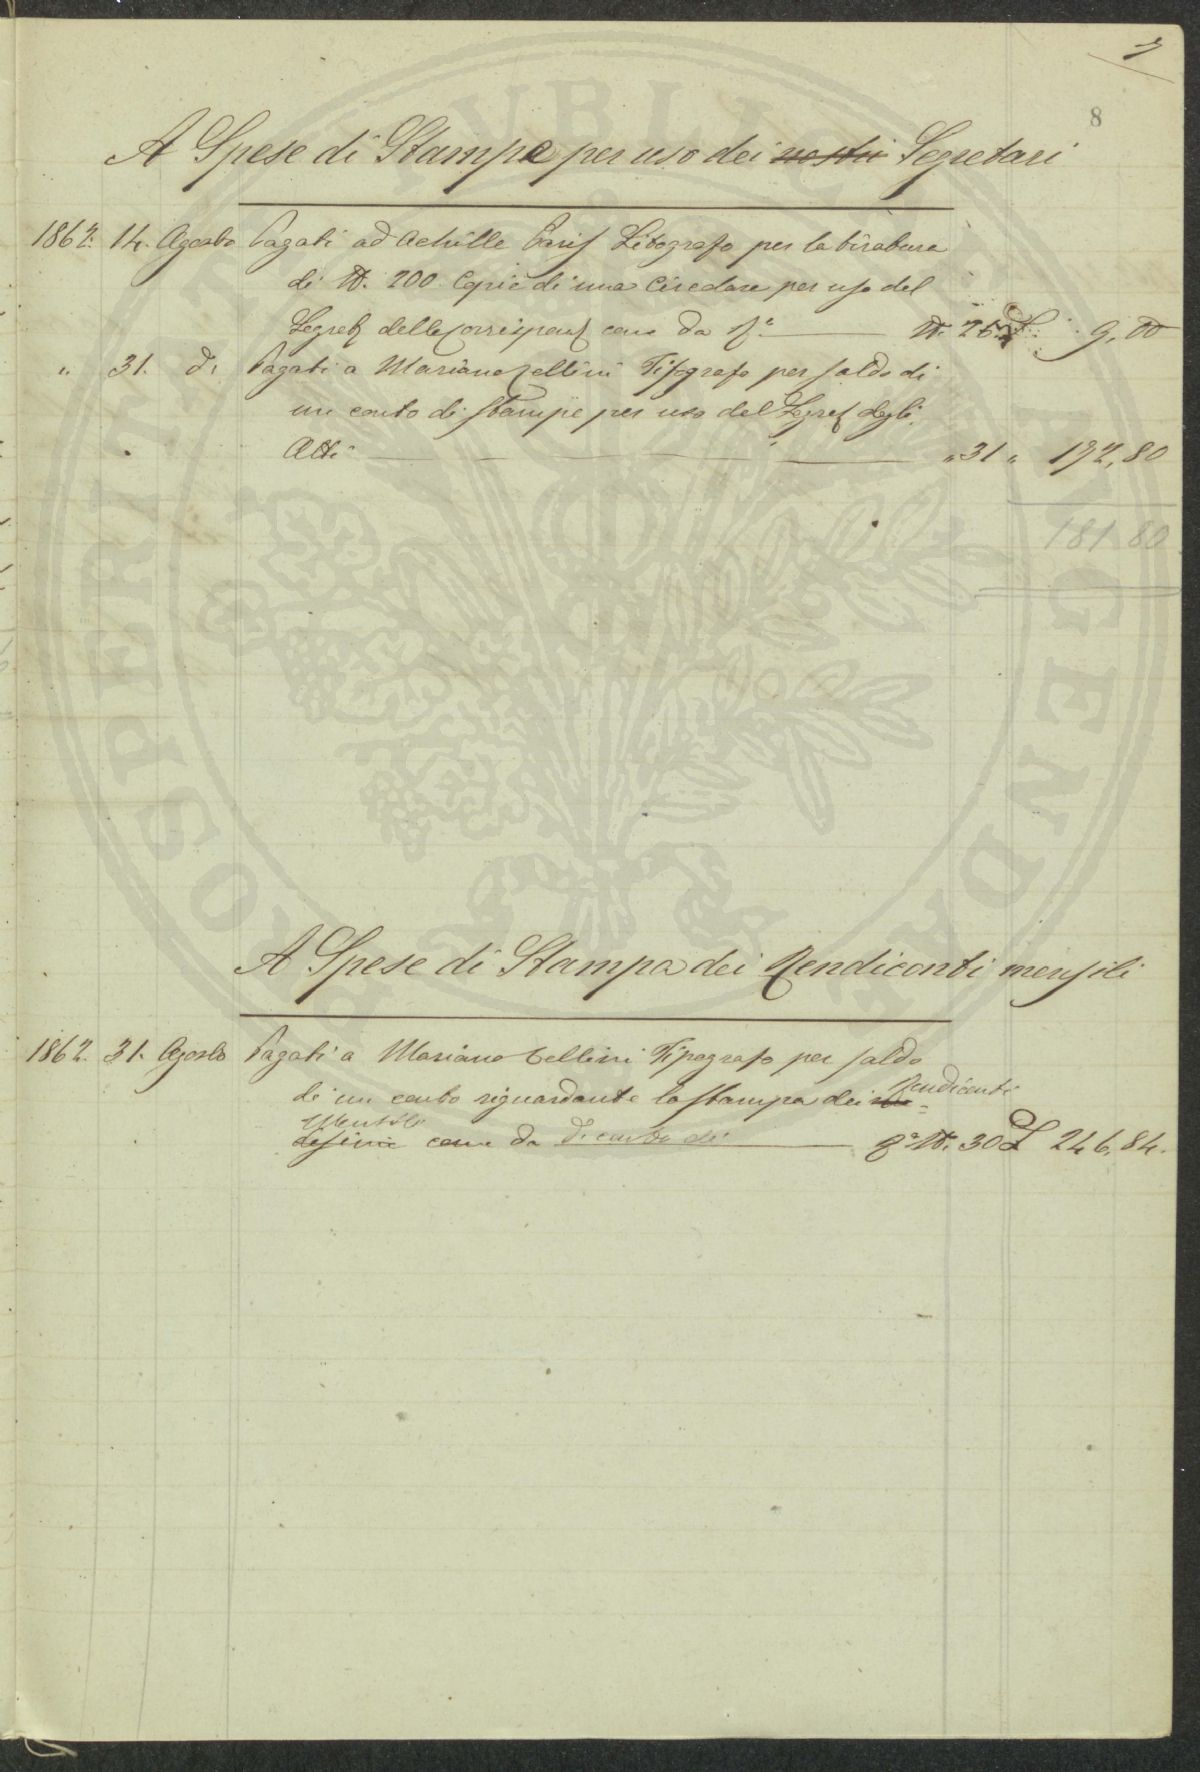 7
8
A Spese di Stampe per uso dei nostri Segretari
1862. 14. Agosto Pagati ad Achille Paris Litografo per la tiratura
di N. 200 Copie di una Circolare per uso del
Segret delle Corrispond come da R.ª N. 26 L. 9,00
" 31. d. Pagati a Mariano Cellini Tipografo per saldo di
un conto di Stampe per uso del Segret degli
Atti " 31 " 172,80
181 80
A Spese di Stampa dei Rendiconti mensili
1862. 31. Agosto Pagati a Mariano Cellini Tipografo per saldo
di un conto riguardante la stampa dei Rendiconti
Mensili come da R.ª N. 30 L 246,84.
PVBLICAE
PROSPERITATI AVGENDAE